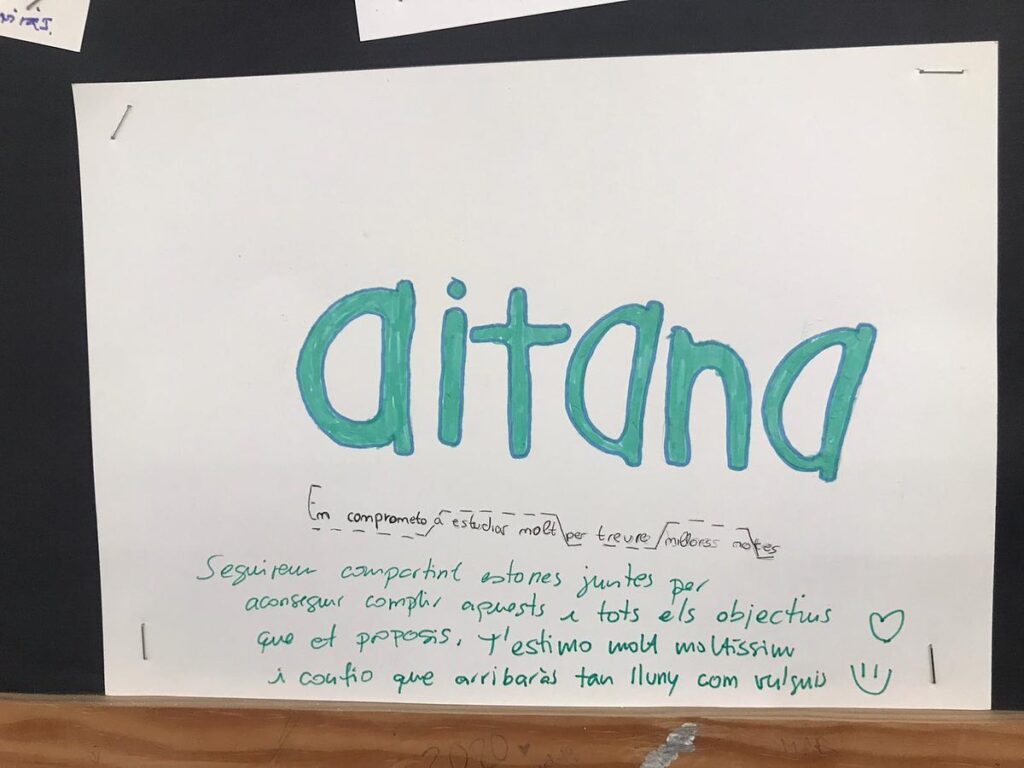 aitana
Em comprometo a estudiar molt per treure millores notes
Seguirem compartint estones juntes per
aconseguir complir aquests i tots els objectius
que et proposis. T'estimo molt moltíssim
i confio que arribaràs tan lluny com vulguis